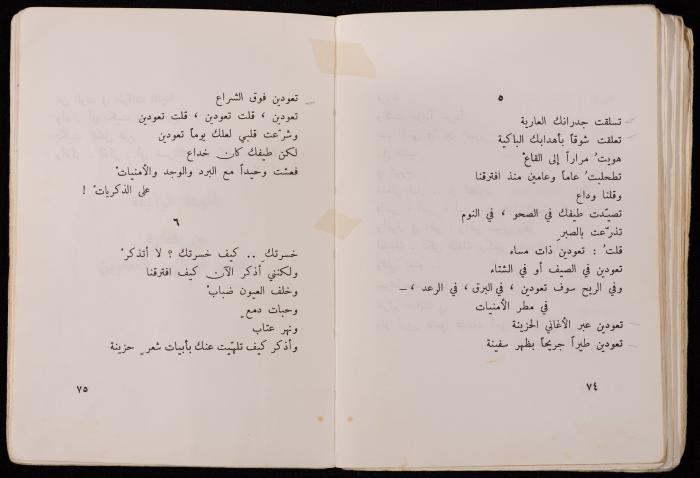 ٥
تسلقت جدرانك العارية
تعلقت شوقاً بأهدابك الباكية
هويتُ مراراً إلى القاعْ
تطحلبتُ عاماً وعامين منذ افترقنا
وقلنا وداع
تصيّدت طيفك في الصحو ، في النوم
تذرّعت بالصبرِ
قلتُ : تعودين ذات مساء
تعودين في الصيف أو في الشتاء
وفي الريح سوف تعودين ، في البرق ، في الرعد ، ـ
في مطر الأمنيات
تعودين عبر الأغاني الحزينة
تعودين طيراً جريحاً بظهر سفينة
٧٤
تعودين فوق الشراع
تعودين ، قلت تعودين ، قلت تعودين
وشرّعت قلبي لعلك يوماً تعودين
لكن طيفك كان خداع
فعشت وحيداً مع البرد والوجد والأمنياتْ
على الذكرياتْ !
٦
خسرتكِ .. كيف خسرتك ؟ لا أتذكرْ
ولكنني أذكر الآن كيف افترقنا
وخلف العيون ضبابْ
وحبات دمعٍ
ونهر عتاب
وأذكر كيف تلهّيت عنك بأبيات شعرٍ حزينة
٧٥